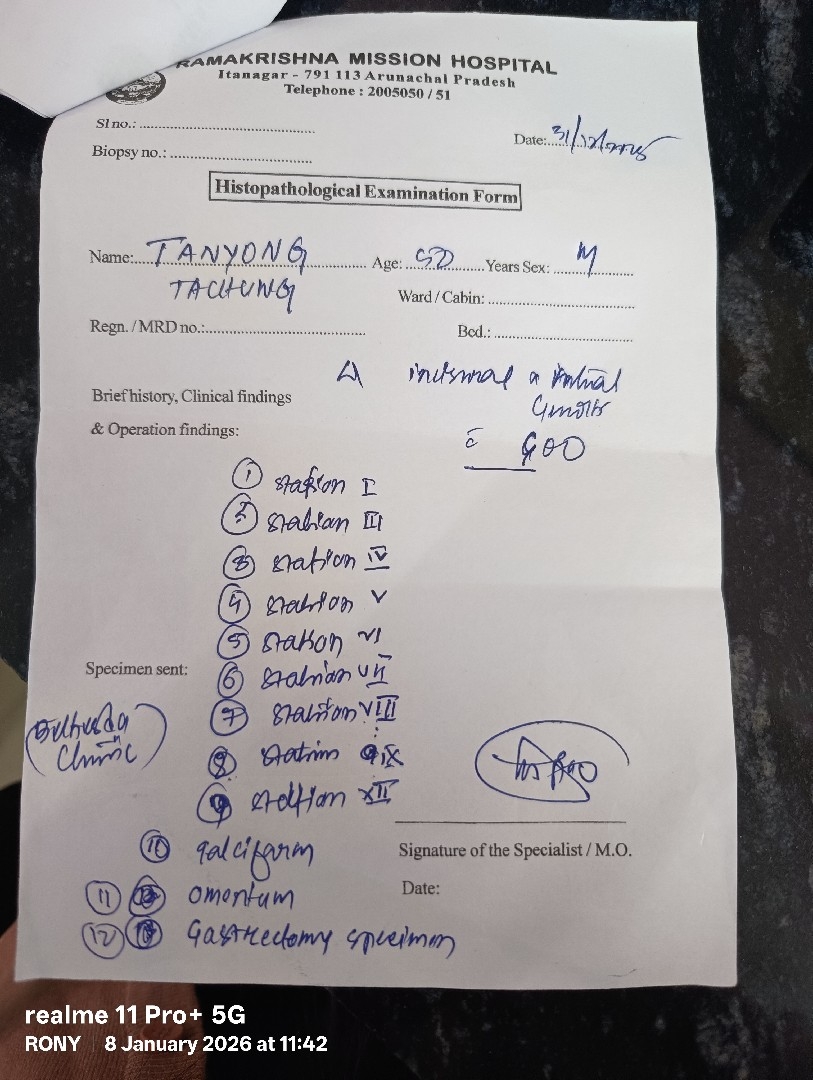 RAMAKRISHNA MISSION HOSPITAL
Itanagar - 791 113 Arunachal Pradesh
Telephone : 2005050 / 51
Sl no.:
Date: 31/12/2025
Biopsy no.:
Histopathological Examination Form
Name: TANYONG Age: 50 Years Sex: M
TACHUNG
Ward / Cabin:
Regn. / MRD no.:
Bed.:
Brief history, Clinical findings
& Operation findings:
c̄ GOO
① station I
② station III
③ station IV
④ station V
⑤ station VI
Specimen sent:
⑥ station VII
⑦ station VIII
Clinic
⑧ station IX
⑨ station XII
⑩ falciform
Signature of the Specialist / M.O.
⑪ omentum
Date:
⑫ Gastrectomy specimen
realme 11 Pro+ 5G
RONY 8 January 2026 at 11:42